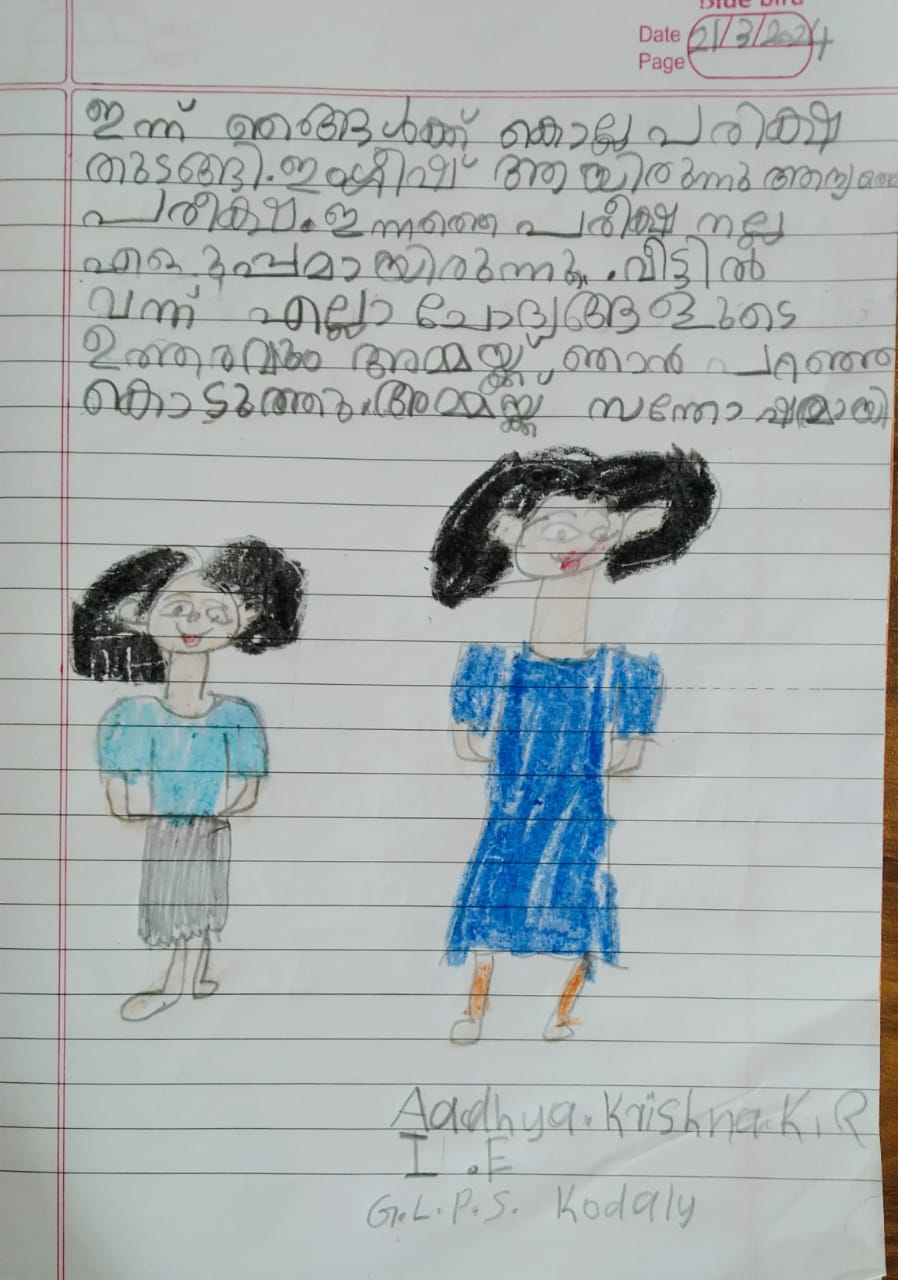 Blue Bird
Date 21/3/2024
Page
ഇന്ന് ഞങ്ങൾക്ക് കൊല്ല പരീക്ഷ
തുടങ്ങി. ഇംഗ്ലീഷ് ആയിരുന്നു ആദ്യത്തെ
പരീക്ഷ. ഇന്നത്തെ പരീക്ഷ നല്ല
എളുപ്പമായിരുന്നു. വീട്ടിൽ
വന്ന് എല്ലാ ചോദ്യങ്ങളുടെ
ഉത്തരവും അമ്മയ്ക്ക് ഞാൻ പറഞ്ഞു
കൊടുത്തു. അമ്മയ്ക്ക് സന്തോഷമായി
Aadhya. Krishna. K. R
I . E
G.L.P.S. Kodaly